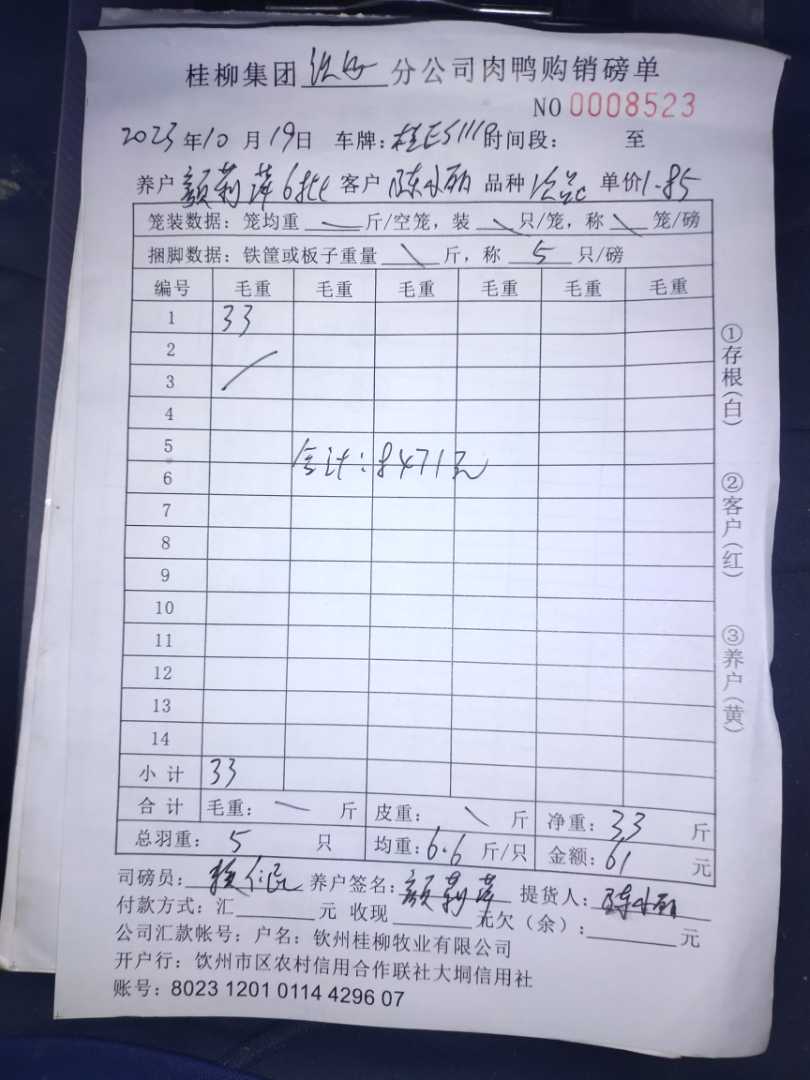 桂柳集团 分公司肉鸭购销磅单
NO 0008523
2023年10月19日 车牌：桂E5111P 时间段： 至
养户 颜莉萍 6批 客户 陈小丽 品种 单价 1.85
笼装数据：笼均重 斤/空笼，装 只/笼，称 笼/磅
捆脚数据：铁筐或板子重量 斤，称 5 只/磅
编号 毛重 毛重 毛重 毛重 毛重 毛重
1 33
2
3
4
5
合计：8471元
6
7
8
9
10
11
12
13
14
小计 33
合计 毛重： 斤 皮重： 斤 净重：33 斤
总羽重：5 只 均重：6.6 斤/只 金额：61 元
司磅员： 养户签名：颜莉萍 提货人：陈小丽
付款方式：汇 元 收现 元欠（余）： 元
公司汇款帐号：户名：钦州桂柳牧业有限公司
开户行：饮州市区农村信用合作联社大垌信用社
账号：8023 1201 0114 4296 07
①存根（白）
②客户（红）
③养户（黄）